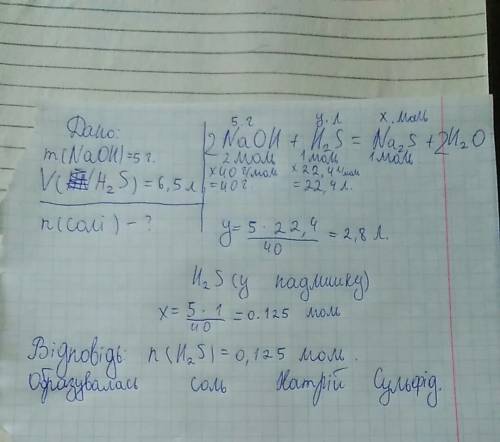 Дано:
m(NaOH)=5г.
V(H₂S)=6,5л
n(солі)-?
5.г у.л х.моль
2NaOH + H₂S = Na₂S + 2H₂O
2моль 1моль 1моль
×40г/моль ×22,4л/моль
=40г =22,4л.
y= 5·22,4/40 =2,8л.
H₂S(у надлишку)
x= 5·1/40 =0.125 моль
Відповідь: n(H₂S)=0,125 моль.
Образувалась соль Натрій Сульфід.